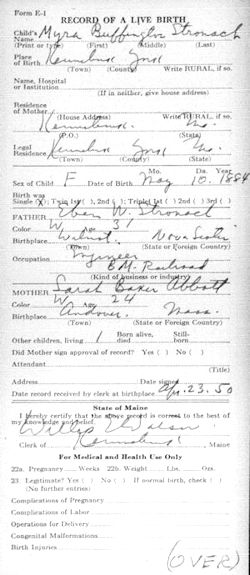 Form E-1
RECORD OF A LIVE BIRTH
Child's Name Myra Buffington Stronach
(Print or type) (First) (Middle) (Last)
Place of Birth Kennebunk York
(Town) (County) Write RURAL, if so.
Name, Hospital
or Institution
(If in neither, give house address)
Residence
of Mother
(House Address) (State)
Kennebunk Me.
(P.O.) (State)
Legal
Residence Kennebunk York Me.
(Town) (County) Write RURAL, if so.
Mo. Da. Year
Sex of Child F Date of Birth May 10. 1884
Birth was
Single (X); Twin 1st ( ) 2nd ( ); Triplet 1st ( ) 2nd ( ) 3rd ( )
FATHER Eben W. Stronach
Color W Age 31
Birthplace Nova Scotia
(Town) (State or Foreign Country)
Occupation Engineer
B.M. Railroad
(Kind of business or industry)
MOTHER Sarah Baker Abbott
Color W Age 24
Birthplace Andover Mass.
(Town) (State or Foreign Country)
Other children, living 1 Born alive, died Still-born
Did Mother sign approval of record? Yes ( ) No ( )
Attendant
(Title)
Address Date signed
Date record received by clerk at birthplace Apr. 23. 50
State of Maine
I hereby certify that the above record is correct to the best of
my knowledge and belief.
Clerk of Kennebunk, Maine
For Medical and Health Use Only
22a. Pregnancy Weeks 22b. Weight Lbs. Ozs.
23. Legitimate? Yes ( ) No ( ) If normal birth, check ( )
(No further entries)
Complications of Pregnancy
Complications of Labor
Operations for Delivery
Congenital Malformations
Birth Injuries
(OVER)